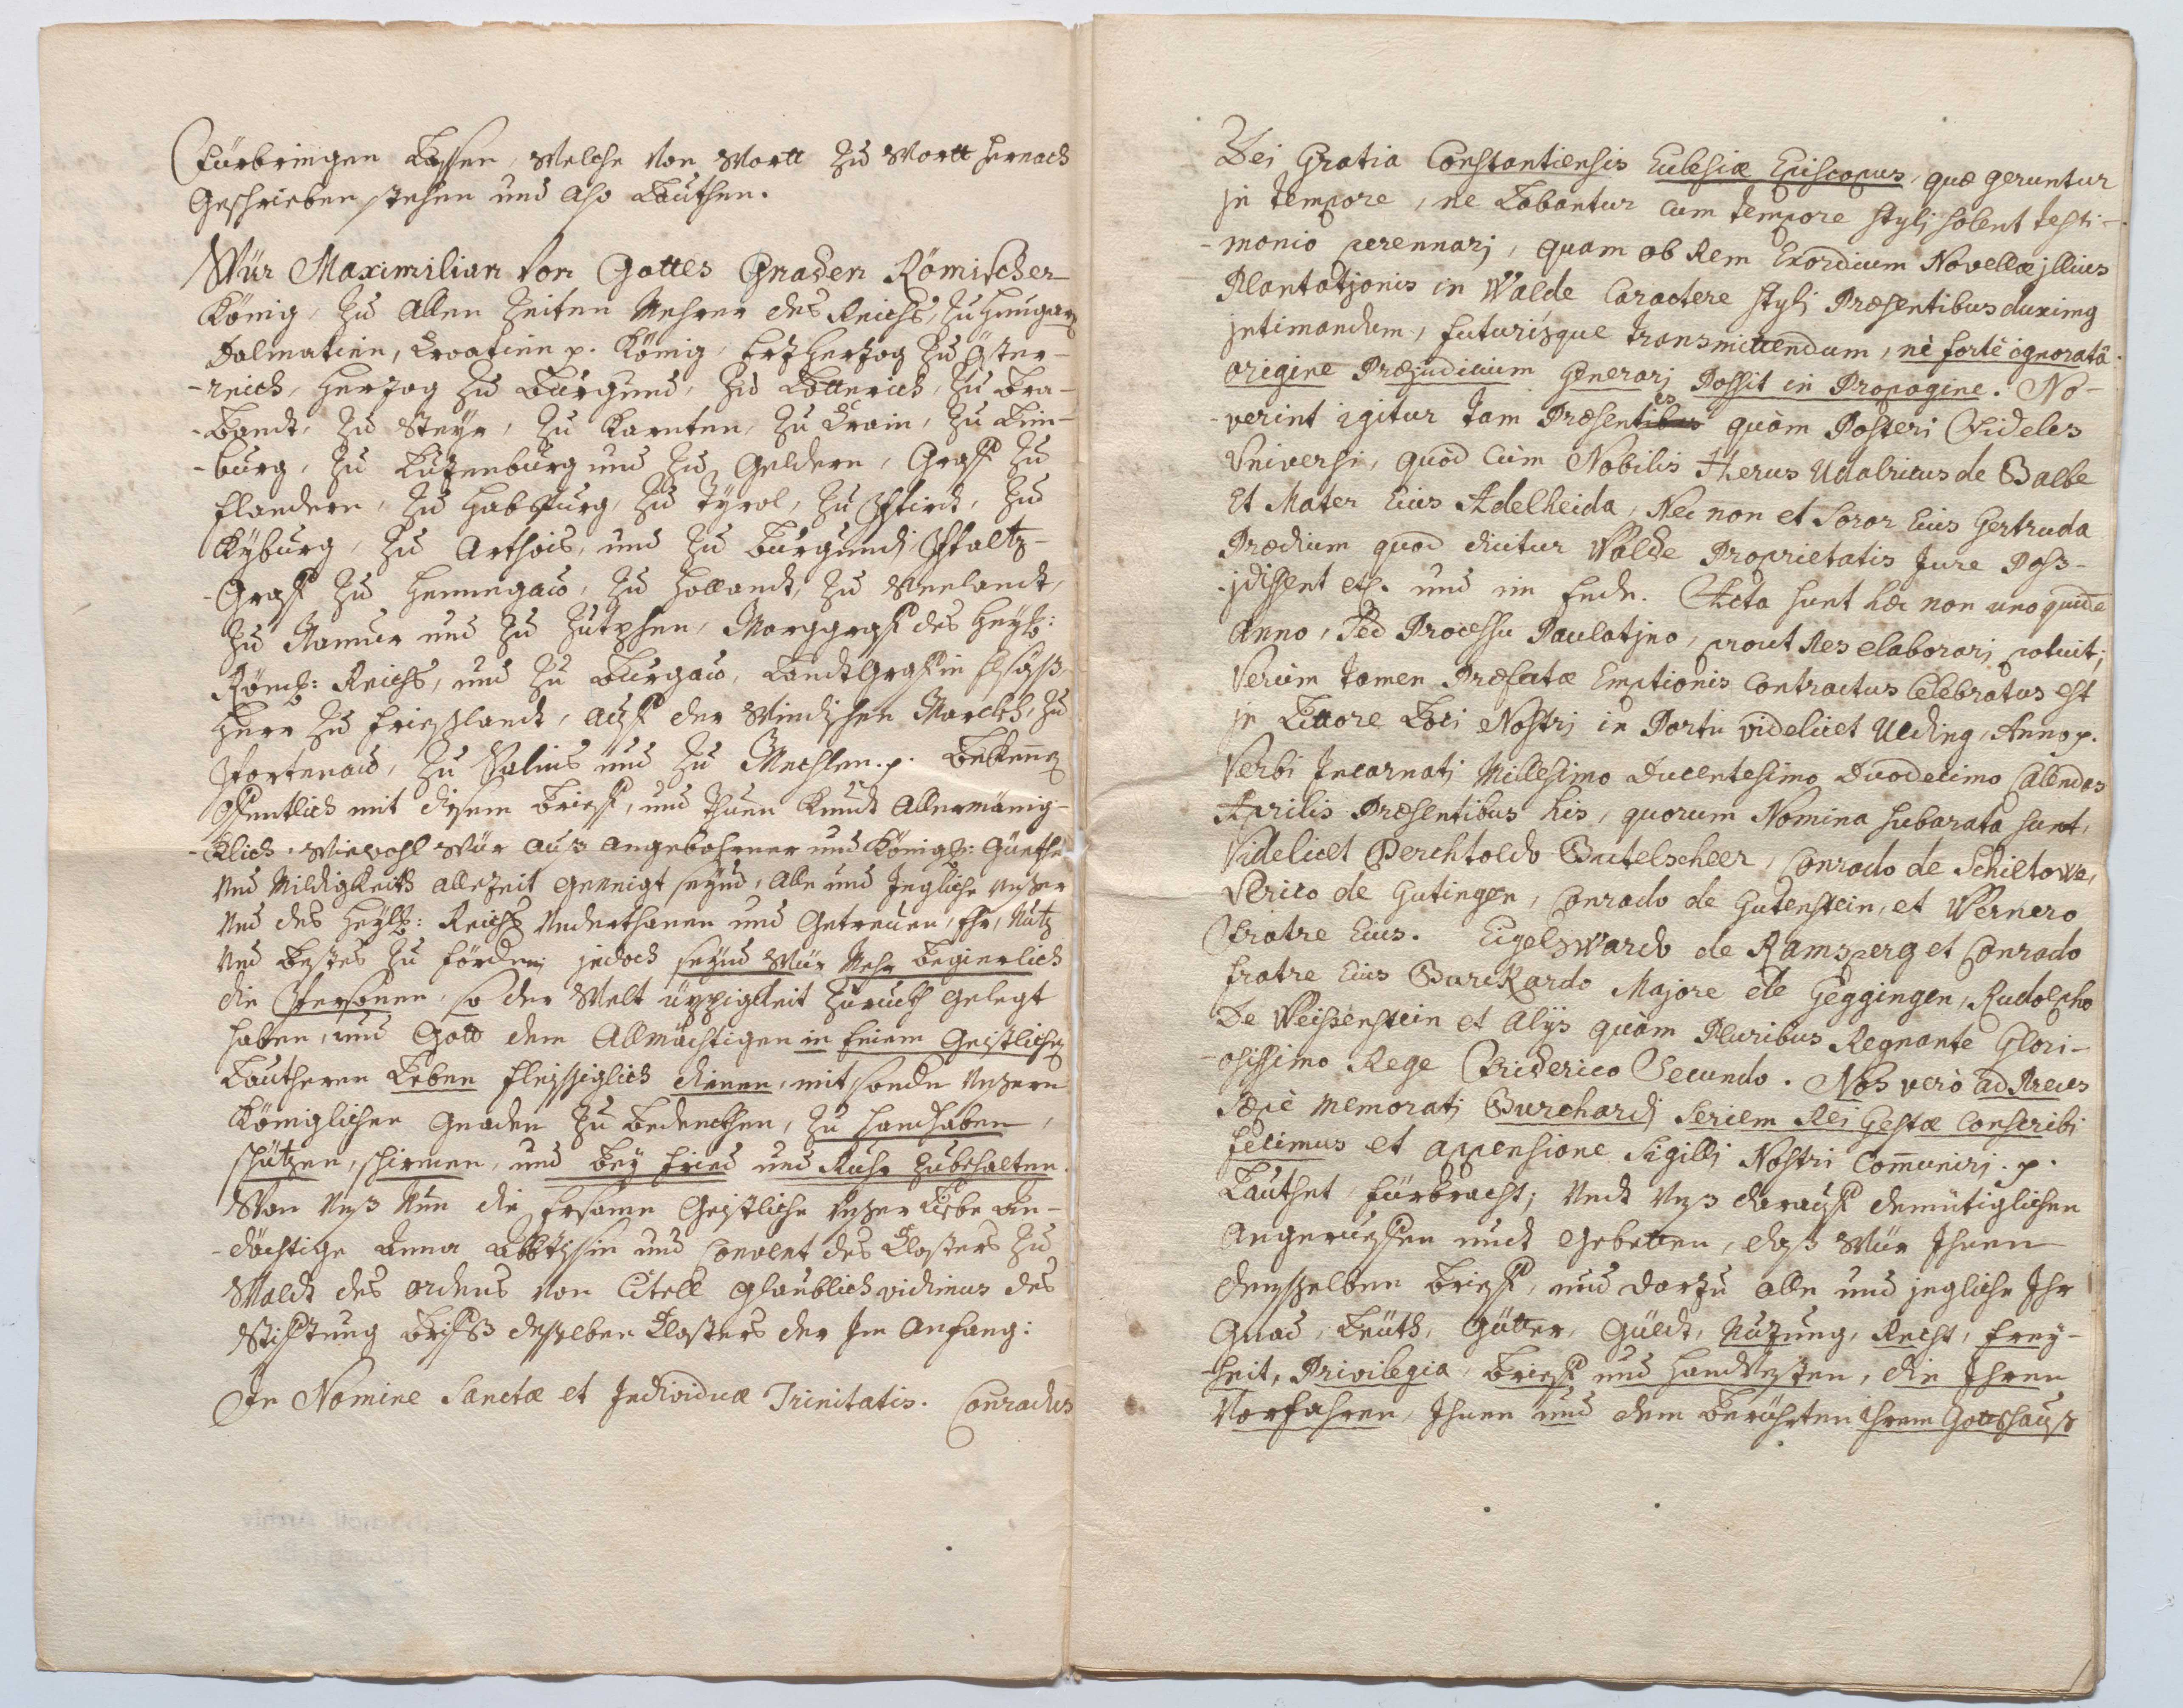 Fürbringen Lassen, welche von Wortt zu Wortt hernach
Geschrieben stehen und also Lauthen.
Wür Maximilian von Gottes Gnaden Römischer
König, zu Allen Zeiten Mehrer des Reichs, zu Hungarn
Dalmatien, Croatien p. König, Ertzhertzog zu Öster-
-reich, Hertzog zu Burgund, zu Lotterich, zu Bra-
-bandt, zu Steyr, zu Karnten, zu Crain, zu Lim-
-burg, zu Luzenburg und zu Geldern, Graff zu
Flandern, zu Habspurg, zu Tyrol, zu Pfirdt, zu
Kyburg, zu Arthois, und zu Burgundj Pfaltz-
-Graff zu Hennegaw, zu Hollandt, zu Seelandt,
zu Namur und zu Zutphen, Marggraff des Heyl:
Römsch: Reichs, und zu Burgaw, Landtgraff in Elsaß,
Herr zu Frießlandt, auff der Windischen Marckh, zu
Portenaw, zu Salins und zu Mechlen. p. Bekennen
Offentlich mit disem Brieff, und Thuen Kundt Allermänig-
-klich, Wiewohl Wür auß angebohrner und Königl: Güethe
Und Mildigkeith allezeit geneigt seynd, alle und Jegliche unser
Und des Heyl: Reichs Underthanen und Getreuen, Ehr, Nutz
Und Bestes zu fördern jedoch seynd Wür Mehr begierlich
die Persohnen, so der Welt üppigkeit zuruckh gelegt
haben, und Gott dem Allmächtigen in Einem Geistlichen
Lautheren Leben fleissiglich dienen, mit sondern Unsern
Königlichen Gnaden zu bedenckhen, zu handhaben,
schützen, schirmen, und bey fried und Ruhe zubehalten.
Wan Unß Nun die Ersame Geistliche Unser Liebe An-
-dächtige Anna Abbtissin und Convent des Closters zu
Waldt des ordens von Citell glaublich vidimus des
Stifftung Brieffs desselben Closters der Jm Anfang:
In Nomine Sanctæ et Jndividuæ Trinitatis. Conradus
Dei Gratia Constantiensis Eclesiæ Episcopus, quæ geruntur
jn tempore, ne Labantur cum tempore stylj solent testi-
-monio perennarj, quam ob Rem Exordium Novellæ jllius
Plantatjonis in Walde Caractere stylj Præsentibus duximg
jntimandum, futurisque transmittendum, nè fortè ignoratâ
origine Præjudicium Generarj Possit in Propagine. No-
-verint igitur tam Præsentibus es quàm Posteri Fideles
Universi, quòd Cùm Nobilis Herus Udalricus de Balbe
Et Mater Eius Adelheida, Nec non et Soror Eius Gertruda
Prædium quod dicitur Walde Proprietatis Jure Poss-
-jdissent etc. und im Ende. Acta sunt hæc non uno quidē
Anno, Sed Processu Paulatjno, prout Res elaborarj potuit;
Verùm tamen Præfatæ Emptionis Contractus Celebratus est
jn Littore Laci Nostrj in Portu videlicet Ulding, Anno p.
Verbi Jncarnatj Millesimo Ducentesimo Duodecimo Calendas
Aprilis Præsentibus his, quorum Nomina subarata sunt,
Videlicet Berchtoldo Butelscheer, Conrado de Schiltowe,
Ulrico de Gutingen, Conrado de Gutenstein, et Wernero
Fratre Eius. Eigelswardo de Ramsperg et Conrado
fratre Eius Burckardo Majore de Geggingen, Rudolpho
De Weissenstein et Alijs quàm Pluribus Regnante Glori-
-osissimo Rege Friderico Secundo. Nos verò ad Preces
Sæpè memoratj Burchardj Seriem Rei Gestæ Conscribi
fecimus et appensione Sigillj Nostri Com̄unirj. p.
Lauthet fürbracht; Undt Unß darauff demütiglichen
Angerueffen undt Gebetten, daß Wür Jhnen
densselben Brieff, und darzu alle und jegliche Jhr
Gnad, Leüth, Gütter, Güldt, Nuzung, Recht, Frey-
-heit, Privilegia, Brieff und Handvesten, die Jhren
Vorfahren, Jhnen und dem Berührten ihrem Gottshauß